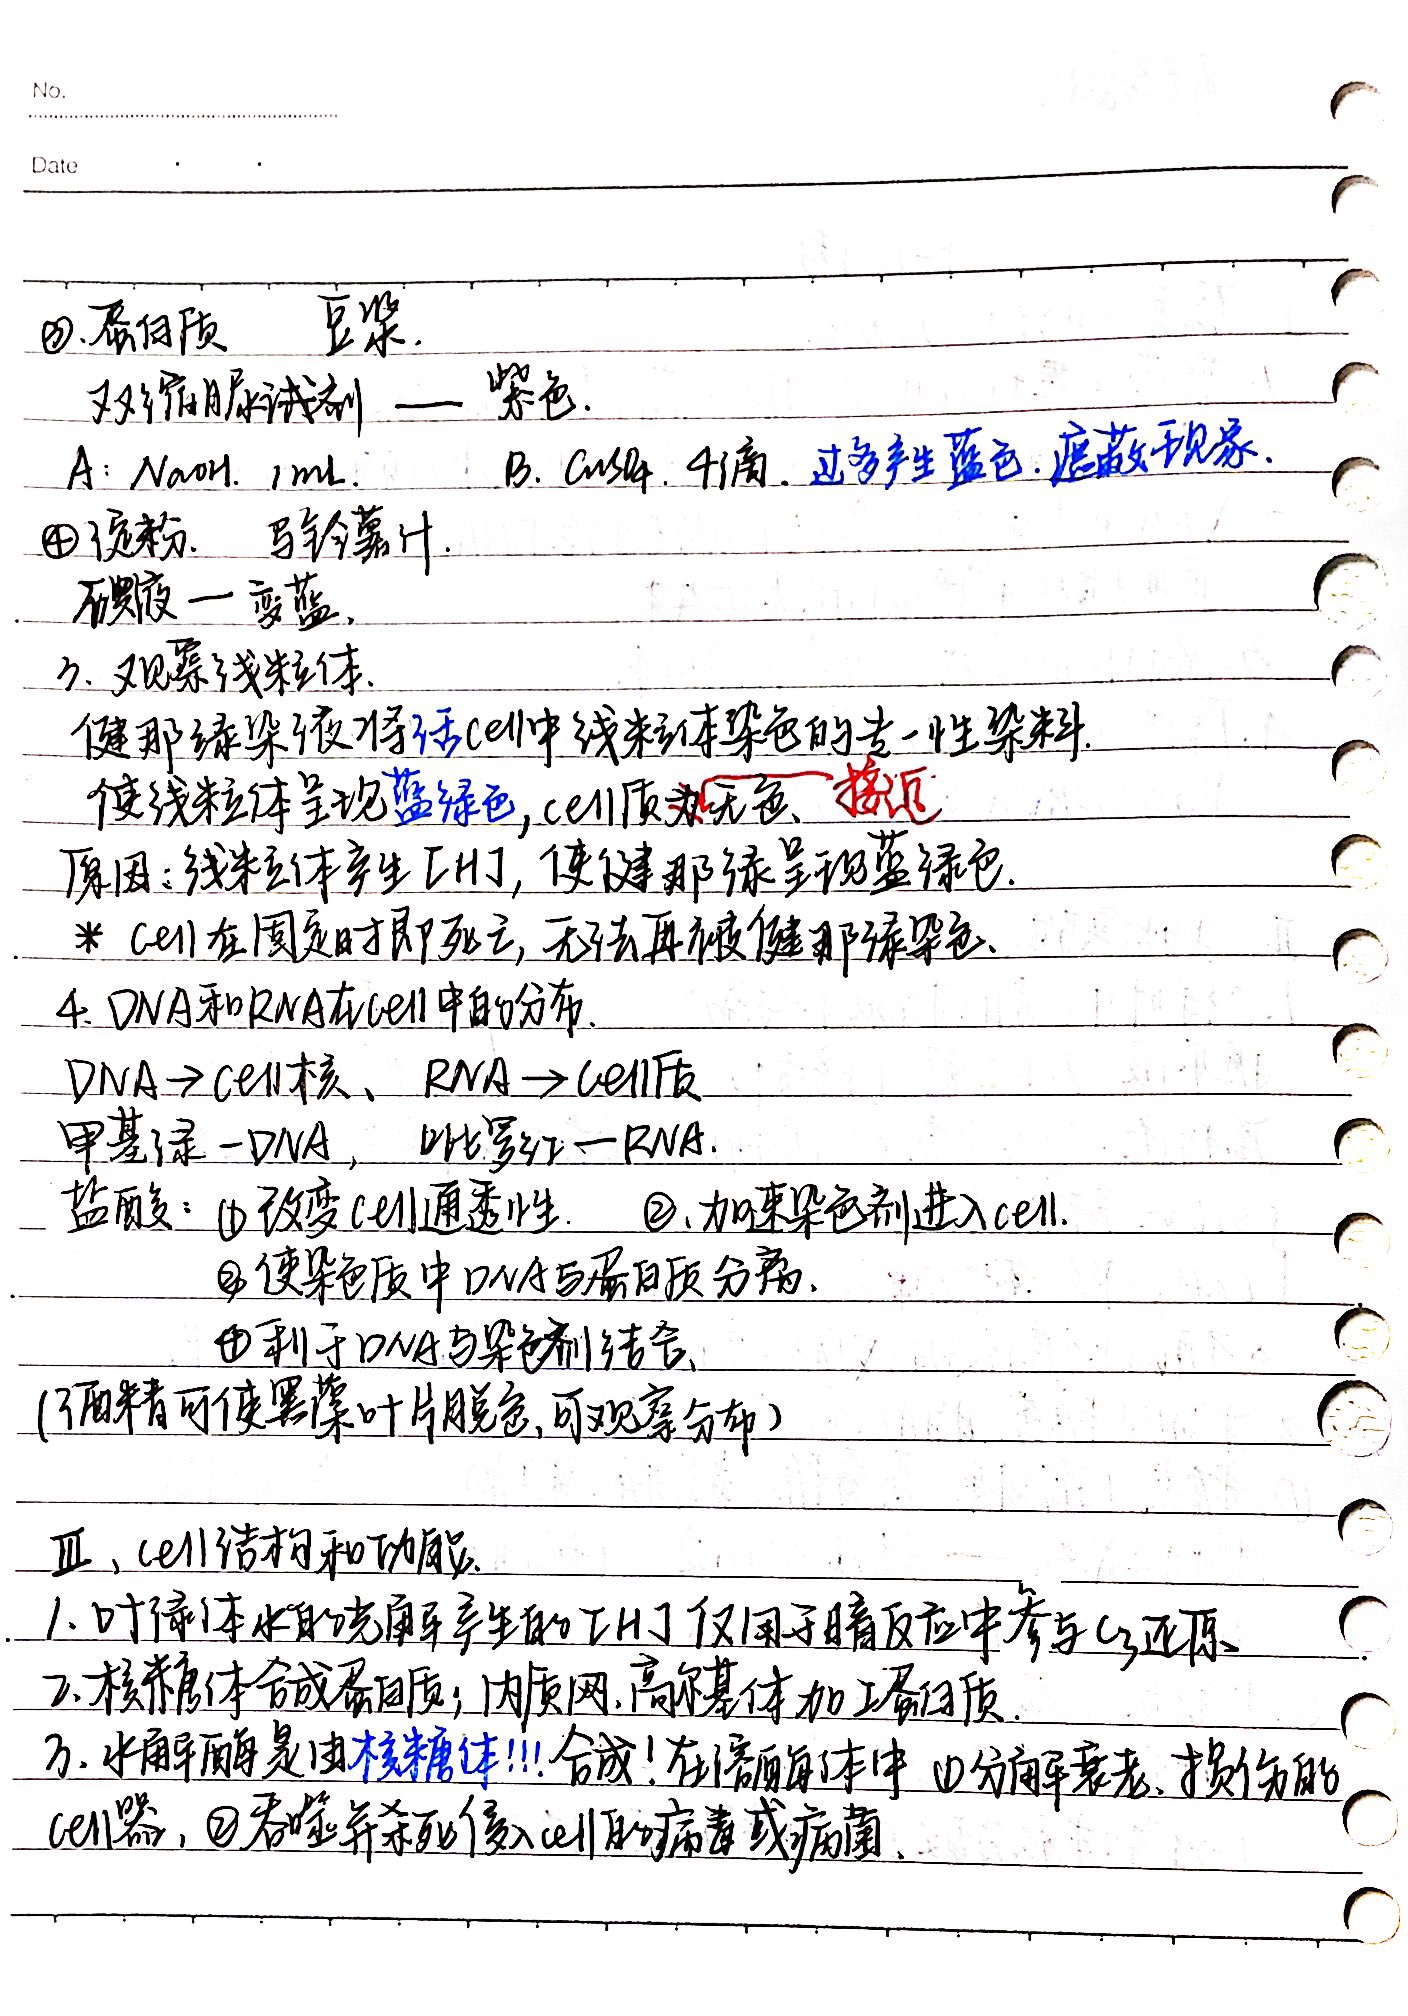 No.
Date
③.蛋白质 豆浆.
双缩脲试剂 — 紫色.
A: NaOH. 1mL. B. CuSO4. 4滴. 过多产生蓝色.遮蔽现象.
④淀粉. 马铃薯汁.
碘液—变蓝.
3. 观察线粒体.
健那绿染液将活cell中线粒体染色的专一性染料.
使线粒体呈现蓝绿色,cell质 无色、 接近
原因:线粒体产生[H],使健那绿呈现蓝绿色.
* cell在固定时即死亡,无法再被健那绿染色、
4. DNA和RNA在cell中的分布.
DNA→cell核、 RNA→cell质
甲基绿—DNA, 吡罗红—RNA.
盐酸: ①改变cell通透性. ②、加速染色剂进入cell.
③使染色质中DNA与蛋白质分离.
④利于DNA与染色剂结合、
(酒精可使黑藻叶片脱色,可观察分布)
Ⅲ、cell结构和功能.
1. 叶绿体水的光解产生的[H]仅用于暗反应中参与C3还原、
2. 核糖体合成蛋白质;内质网.高尔基体加工蛋白质.
3. 水解酶是由核糖体!!!合成!在溶酶体中 ①分解衰老、损伤的
cell器,②吞噬并杀死侵入cell的病毒或病菌、